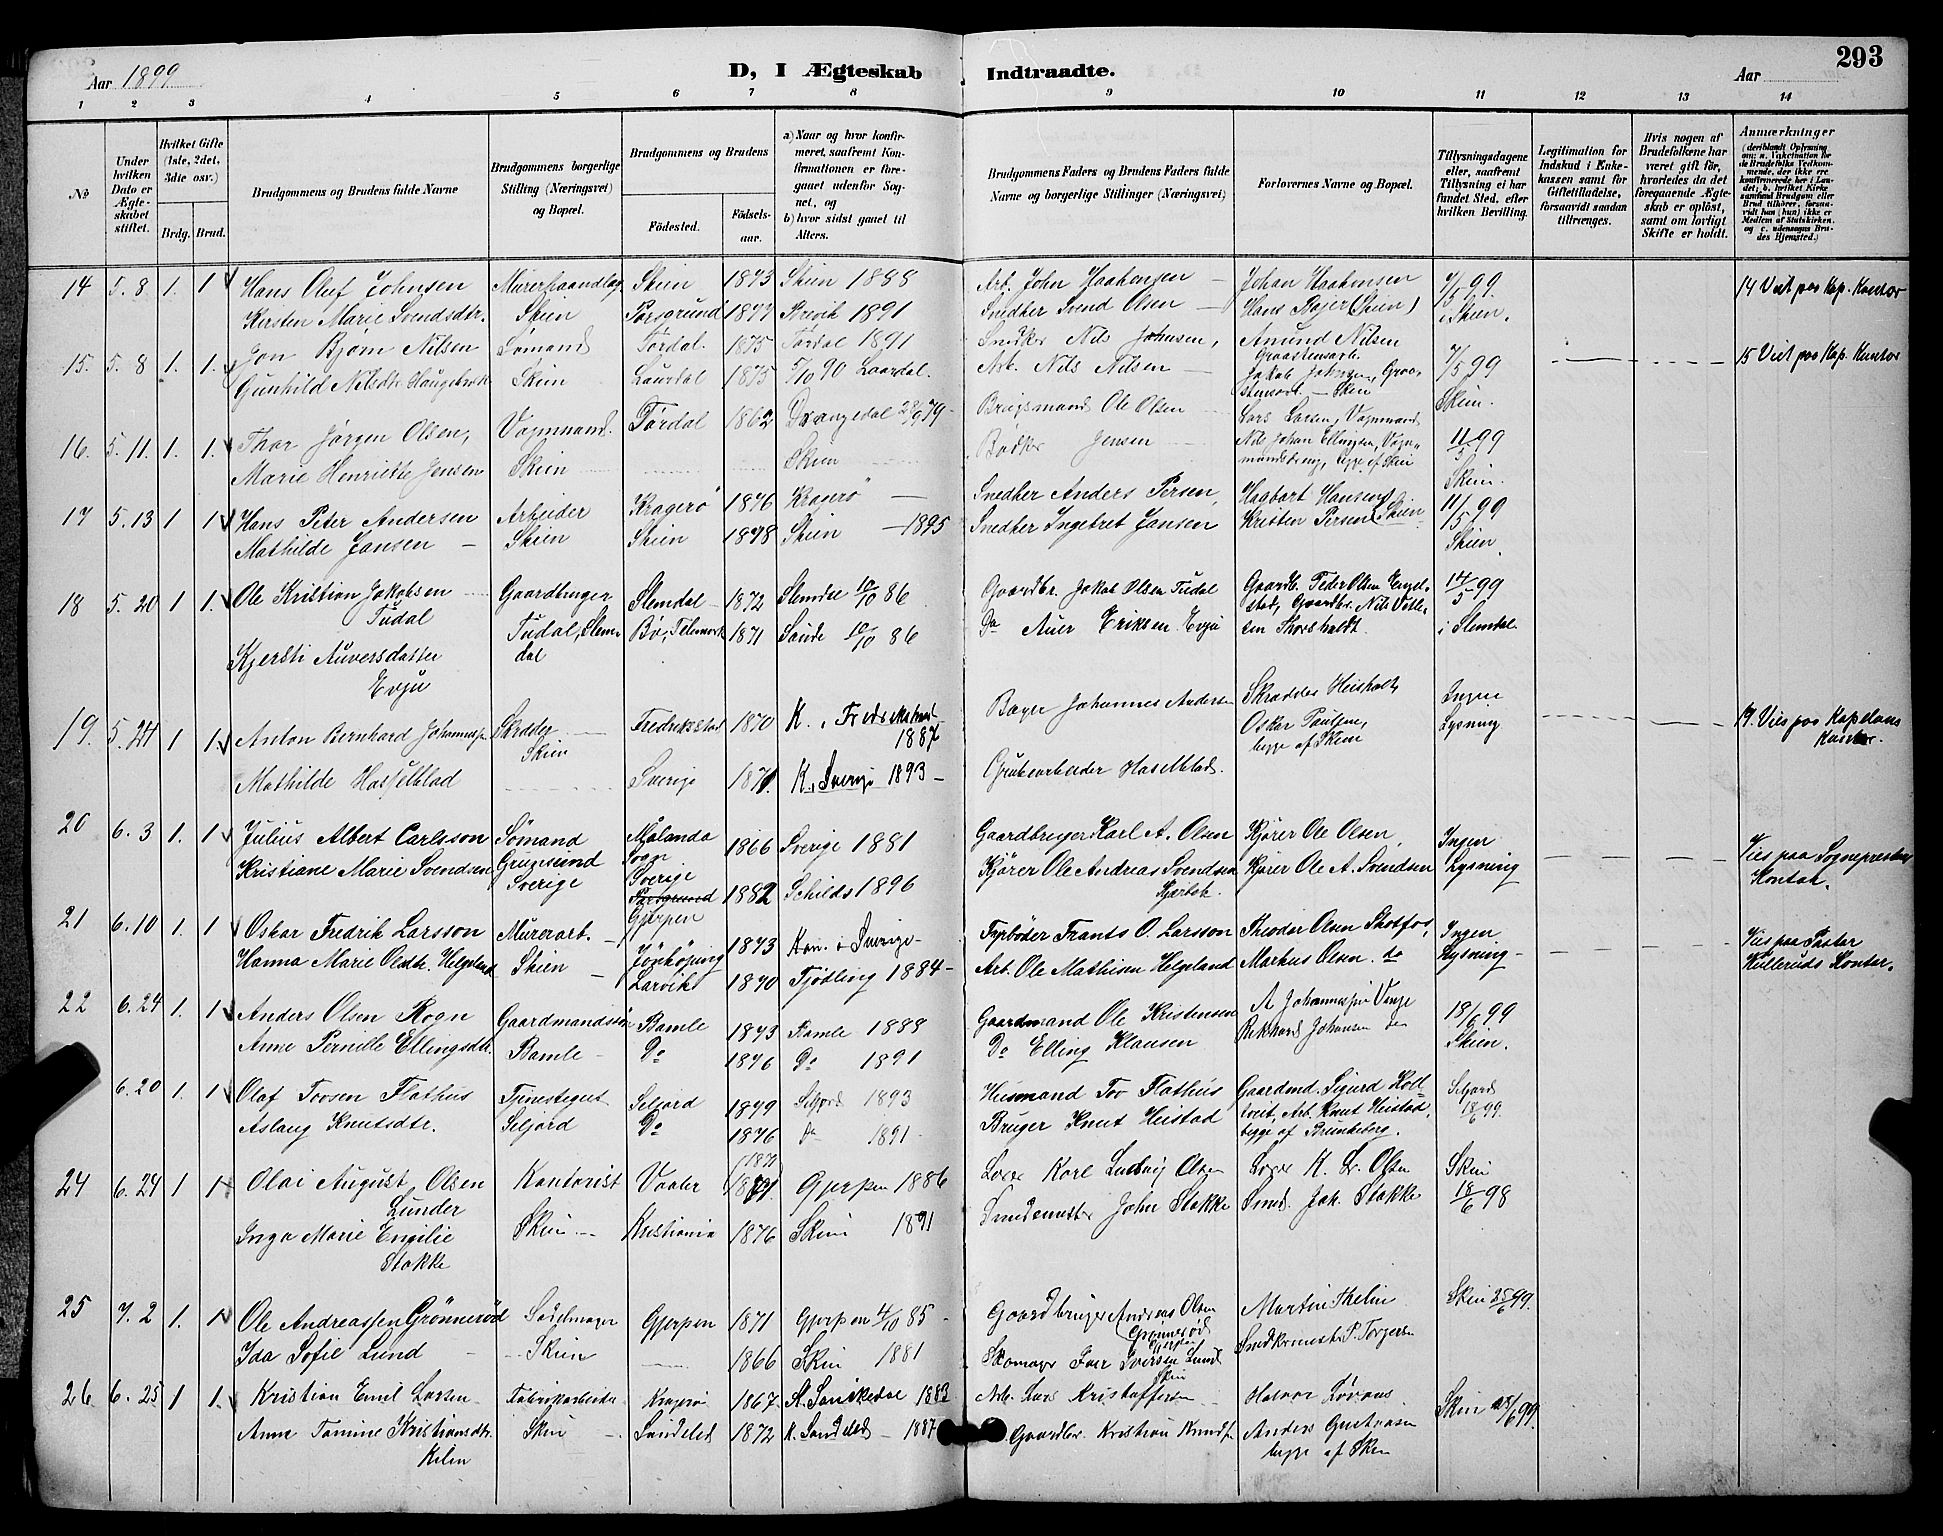 Aar 1899
D, I Ægteskab Indtraadte.
Aar
293
1 2 3 4 5 6 7 8 9 10 11 12 13 14
No
Under hvilken Dato er Ægteskabet stiftet.
Hvilket Gifte (1ste, 2det, 3die osv.)
Brdg. Brud.
Brudgommens og Brudens fulde Navne
Brudgommens borgerlige Stilling (Næringsvei) og Bopæl.
Brudgommens og Brudens
Fødested.
Fødselsaar.
a) Naar og hvor konfirmeret, saafremt Konfirmationen er foregaaet udenfor Sognet, og
b) hvor sidst gaaet til Alters.
Brudgommens Faders og Brudens Faders fulde Navne og borgerlige Stillinger (Næringsvei)
Forlovernes Navne og Bopæl.
Tillysningsdagene eller, saafremt Tillysning ei har fundet Sted, efter hvilken Bevilling.
Legitimation for Indskud i Enkekassen samt for Giftetilladelse, forsaavidt saadan tiltrænges.
Hvis nogen af Brudefolkene har været gift før, hvorledes da det foregaaende Ægteskab er opløst, samt om lovligt Skifte er holdt.
Anmærkninger (deriblandt Oplysning om: a. Vakcination for de Brudefolks Vedkommende, der ikke ere konfirmerede her i Landet; b. hvilket Kirkesamfund Brudgom eller Brud tilhører, forsaavidt han (hun) ikke er Medlem af Statskirken, og c. udensogns Brudes Hjemsted.)
14 5.8 1. 1 Hans Oluf Johnsen Murerhaandlag. Skien 1873 Skien 1888 Arb. John Haakensen Johan Haakensen 7/5 99. 14 Viet paa Kap. Kontor
Kirsten Marie Svendsdtr. Skien Porsgrund 1877 Brevik 1891 Snedker Svend Olsen Hans Bojer (Skien) i Skien.
15. 5.8 1. 1. Jon Bjørn Nilsen Sømand Tørdal. 1875 Tørdal 1891 Snedker Nils Johnsen, Amund Nilsen Graastensarb. 7/5 99 15 Viet paa Kap. Kontor
Gunhild Nilsdtr. Haugebrek Skien Laurdal 1875 5/10 90 Laardal. Arb. Nils Nilsen Jakob Johnsen, Graastensarb. Skien Skien.
16. 5.11. 1. 1. Thor Jørgen Olsen, Vognmand. Tørdal 1862 Drangedal 28/9 79 Brugsmand Ole Olsen Lars Larsen, Vognmand 11/5 99
Marie Henriette Jensen Skien Skien Bødker Jensen Nils Johan Ellingsen, Vognmandsdreng, begge af Skien Skien.
17 5.13 1 1 Hans Peter Andersen Arbeider Kragerø 1876 Kragerø Snedker Anders Persen, Hagbart Hansen 11/5 99
Mathilde Jansen Skien Skien 1878 Skien 1895 Snedker Ingebret Jansen Kristen Persen (Skien Skien.
18 5.20 1 1. Ole Kristian Jakobsen Tudal Gaardbruger Slemdal 1872 Slemdal 10/10 86 Gaardbr. Jakob Olsen Tudal Gaardb. Peder Olsen Engelstad, Gaardbr. Nils 14/5 99
Kjersti Auversdatter Evju Tudal, Slemdal Bø, Telemark 1871 Saude 10/10 86 Do Auer Eriksen Evju i Slemdal
19. 5.24 1 1 Anton Bernhard Johannesen Skrædder Fredriksstad 1870 K. i Fredrikstad 1887 Bager Johannes Andersen Skrædder Heisholt Ingen Lysning 19. Vies paa Kapelans Kontor.
Mathilde Hasselblad Skien Sverige 1871. K. i Sverige 1893 Grubearbeider Haselblad. Oskar Paulsen, begge af Skien
20 6.3 1. 1 Julius Albert Carlsson Sømand Mølanda Sogn Sverige 1866 Sverige 1881 Gaardbruger Karl A. Olsen Kjører Ole Olsen, Ingen Lysning Vies paa Sogneprestens Kontor.
Kristiane Marie Svendsen Grunsund Sverige Porsgrund Gjerpen 1882 Schilds 1896 Kjører Ole Andreas Svendsen Kjører Ole A. Svendsen
21 6.10 1. 1 Oskar Fredrik Larsson Murerarb. Jönköping 1873 Kon. i Sverige Fyrbøder Frants O. Larsson Theodor Olsen Skotfos, Ingen Lysning Vies paa Pastor Kulleruds Kontor.
Hanna Marie Olsdtr. Helgeland Skien Larvik 1870 Tjødling 1884 Arb. Ole Mathisen Helgeland Markus Olsen do
22 6.24 1. 1 Anders Olsen Rogn Gaardmandssøn Bamle 1873 Bamle 1888 Gaardmand Ole Kristensen A Johannesen Vinje 18/6 99
Anne Pernille Ellingsdtr. Bamle Do 1876 Do 1891 Do Elling Klausen Rikhard Johansen do Skien.
6.20 1. 1 Olaf Tovsen Flathus Tjenestegut Seljord 1879 Seljord 1893 Husmand Tov Flathus Gaardmd. Sigurd Kolltveit, Arb. Knut Heistad, begge af Brunkeberg. Seljord 18/6 99.
Aslaug Knutsdtr. Seljord Do 1876 Do 1891 Bruger Knut Heistad
24 6.24 1 1 Olai August Olsen Lunder Kontorist Vaaler (1871 1871. Gjerpen 1886 Karl Ludvig Olsen K. L. Olsen Skien 18/6 98
Inga Marie Engilie Stokke Skien Kristiania 1876 Skien 1891 Smedemester John Stokke Smed. Joh. Stokke
25 7.2 1. 1 Ole Andreassen Grønnerød Sadelmager Gjerpen 1871 Gjerpen 4/10 85 Gaardbruger Andreas Olsen Grønnerød Gjerpen Martin Skelin Skien 25/6 99.
Ida Sofie Lund Skien 1866 Skien 1881 Skomager Iver Iversen Lund Skien Snedkermester P. Torgersen
26 6.25 1 1. Kristian Emil Larsen Fabrikarbeider Kragerø 1867. K. Sanikedal 1883 Arb. Lars Kristoffersen Halvor Løvaas Skien 25/6 99.
Anne Tomine Kristiansdtr. Kilen Skien Sandeled 1872 K. Sandeled 1887 Gaardbr. Kristian Knuds. Anders Gustavsen begge af Skien